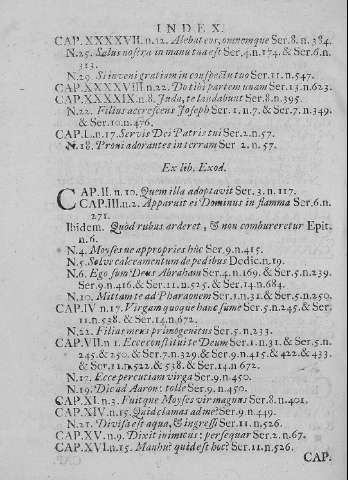 INDEX.
CAP. XXXXVII. n. 12. Alebat eos, omnemque Ser. 8. n. 384.
N. 25. Salus nostra in manu tua est Ser. 4. n. 174. & Ser. 6. n.
313.
N. 29. Si inveni gratium in conspectu tuo Ser. 11. n. 547.
CAP. XXXXVIII. n. 22. Do tibi partem unam Ser. 13. n. 623.
CAP. XXXXIX. n. 8. Juda, te laudabunt Ser. 8. n. 395.
N. 22. Filius accrescens Joseph Ser. 1. n. 7. & Ser. 7. n. 349.
& Ser. 10. n. 476.
CAP. L. n. 17. Servis Dei Patris tui Ser. 2. n. 57.
N. 18. Proni adorantes in terram Ser 2. n. 57.
Ex lib. Exod.
CAP. II. n. 10. Quem illa adoptavit Ser. 3. n. 117.
CAP. III. n. 2. Apparuit ei Dominus in flamma Ser. 6. n.
271.
Ibidem. Quòd rubus arderet, & non combureretur Epit.
n. 6.
N. 4. Moyses ne appropries hùc Ser. 9. n. 415.
N. 5. Solve calceamentum de pedibus Dedic. n. 19.
N. 6. Ego sum Deus Abraham Ser. 4. n. 169. & Ser. 5. n. 239.
Ser. 9. n. 416. & Ser. 11. n. 525. & Ser. 14. n. 684.
N. 10. Mittam te ad Pharaonem Ser. 1. n. 31. & Ser. 5. n. 250.
CAP. IV n. 17. Virgam quoque hanc sume Ser. 5. n. 245. & Ser.
11. n. 538. & Ser. 14. n. 672.
N. 22. Filius meus primogenitus Ser. 5. n. 233.
CAP. VII. n 1. Ecce constitui te Deum Ser. 1. n. 31. & Ser. 5. n.
245. & 250. & Ser. 7. n. 329. & Ser. 9. n. 415. & 422. & 433.
& Ser. 11. n. 522. & 538. & Ser. 14. n. 672.
N. 17. Ecce percutiam virga Ser. 9. n. 450.
N. 19. Dic ad Aaron: tolle Ser. 9. n. 450.
CAP. XI. n. 3. Fuitque Moyses vir magnus Ser. 8. n. 401.
CAP. XIV. n. 15. Quid clamas ad me? Ser. 9. n. 449.
N. 21. Divisa est aqua, & ingressi Ser. 11. n. 526.
CAP. XV. n. 9. Dixit inimicus: persequar Ser. 2. n. 67.
CAP. XVI. n. 15. Manhu? quid est hoc? Ser. 11. n. 526.
CAP.